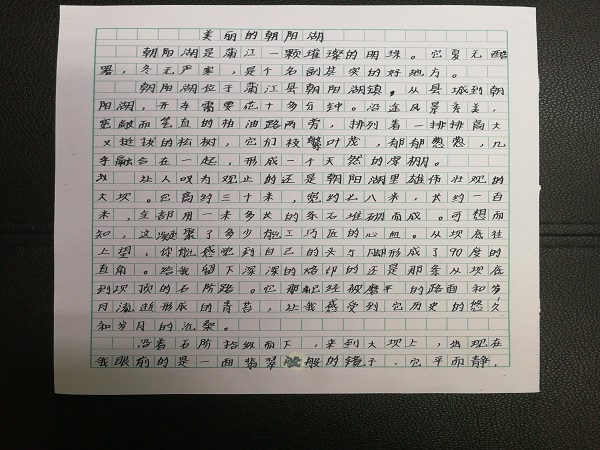 美丽的朝阳湖
朝阳湖是蒲江一颗璀璨的明珠。它夏无酷
暑,冬无严寒,是个名副其实的好地方。
朝阳湖位于蒲江县朝阳湖镇。从县城到朝
阳湖,开车需要花十多分钟。沿途风景秀美,
宽敞而笔直的柏油路两旁,排列着一排排高大
又挺拔的松树,它们枝繁叶茂,郁郁葱葱,几
乎融合在一起,形成一个天然的凉棚。
让人叹为观止的还是朝阳湖里雄伟壮观的
大坝。它高约三十米,宽约七八米,长约一百
米,全部用一米多长的条石堆砌而成。可想而
知,这凝聚了多少能工巧匠的心血。从坝底往
上望,你能感觉到自己的头于脚形成了90度的
直角。给我留下深深的烙印的还是那条从坝底
到坝顶的石阶路。它那已经被磨平的路面和岁
月流逝形成的青苔,让我感受到它历史的悠久
和岁月的沧桑。
沿着石阶拾级而下,来到大坝上,出现在
我眼前的是一面翡翠般的镜子,它平而静,